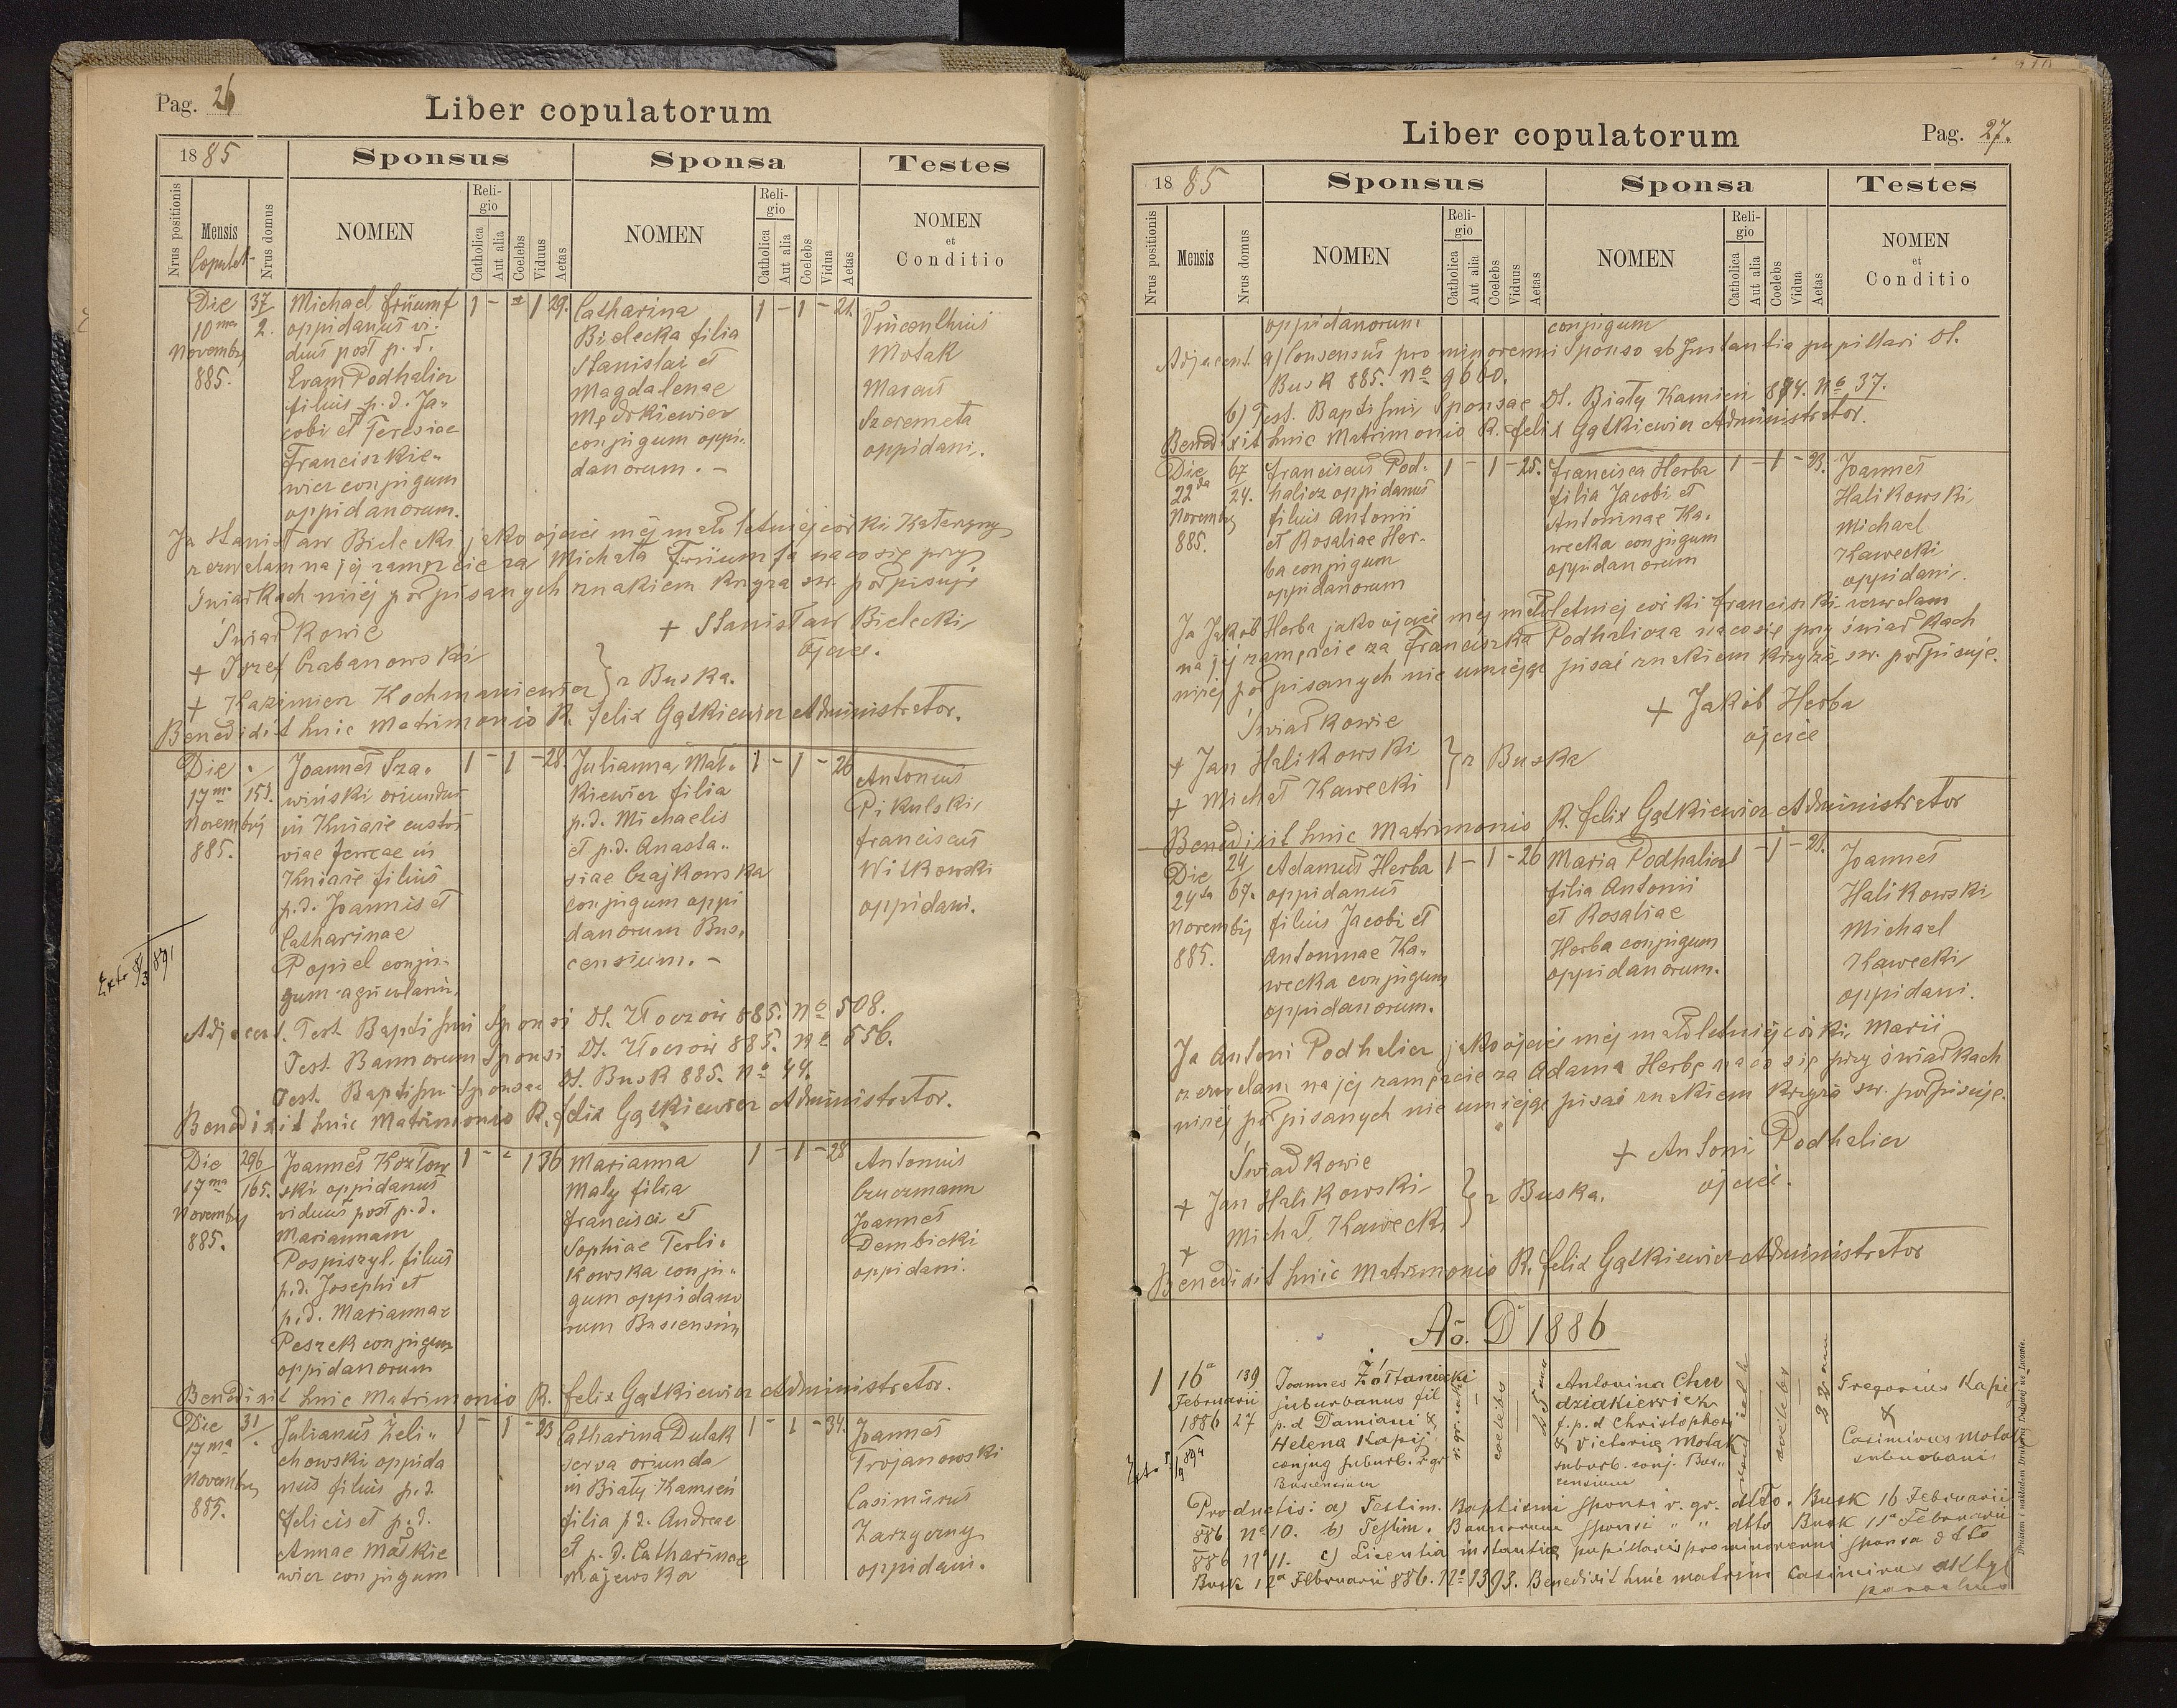 Pag. 26
Liber copulatorum
1885
Sponsus
Sponsa
Testes
Nrus positionis
Mensis
Copulat
Nrus domus
NOMEN
Religio
Catholica
Aut alia
Coelebs
Viduus
Aetas
NOMEN
Religio
Catholica
Aut alia
Coelebs
Vidua
Aetas
NOMEN
et
Conditio
Die 10ma Novembrj 885.
37/2.
Michael Früumf
oppidanus vi-
duus post p. d.
Evam Podhalicz
filius p. d. Ja-
cobi et Teresiae
Franciszkie-
wicz conjugum
oppidanorum.
1 - - 1 29.
Catharina
Bielecka filia
Stanislai et
Magdalenae
Mędrkiewicz
conjugum oppi-
danorum. -
1 - 1 - 21.
Vincenthius
Motak
Marcus
Szoremeta
oppidani.
Ja Stanisław Bielecki jako ojciec mej małoletniej córki Katarzyny
zezwalam na jej zamęzcie za Michała Früumfa na co się przy
świadkach niżej podpisanych znakiem krzyża św. podpisuję
Świadkowie
+ Stanisław Bielecki
ojciec.
+ Józef Czabanowski
+ Kazimierz Kochmaniewicz } z Buska.
Benedixit huic Matrimonio R. Felix Gątkiewicz Administrator.
Die 17ma Novembrj 885.
153.
Joannes Sza-
wiński oriundus
in Kniaże custos
viae ferreae in
Kniaże filius
p. d. Joannis et
Catharinae
Popiel conju-
gum agricolarum.
1 - 1 - 28.
Julianna Mał-
kiewicz filia
p. d. Michaelis
et p. d. Anasta-
siae Czajkowska
conjugum oppi
danorum Bus-
censium. -
1 - 1 - 26
Antonius
Pikulski
Franciscus
Witkowski
oppidani.
Exto 8/3 891
Adjacent. Test. Baptismi Sponsi Dt. Złoczów 885. No 508.
Test. Bannorum Sponsi Dt. Złoczów 885. No 556.
Test. Baptismi Sponsae Dt. Busk 885. No 44.
Benedixit huic Matrimonio R. Felix Gątkiewicz Administrator.
Die 17ma Novembrj 885.
296/165.
Joannes Kozłow
ski oppidanus
viduus post p. d.
Mariannam
Pospiszyl, filius
p. d. Josephi et
p. d. Mariannae
Peszek conjugum
oppidanorum
1 - - 1 36
Marianna
Mały filia
Francisci et
Sophiae Terli-
kowska conju-
gum oppidano
rum Buscensium
1 - 1 - 28
Antonius
Czuczmann
Joannes
Dembicki
oppidani.
Benedixit huic Matrimonio R. Felix Gątkiewicz Administrator.
Die 17ma Novembrj 885.
31/.
Julianus Zeli-
chowski oppida
nus filius p. d.
Felicis et p. d.
Annae Maśkie
wicz conjugum
1 - 1 - 23
Catharina Dulak
serva oriunda
in Biały Kamień
filia p. d. Andreae
et p. d. Catharinae
Majewska
1 - 1 - 34.
Joannes
Trojanowski
Casimirus
Zarzyczny
oppidani.
Liber copulatorum
Pag. 27.
1885
Sponsus
Sponsa
Testes
Nrus positionis
Mensis
Nrus domus
NOMEN
Religio
Catholica
Aut alia
Coelebs
Viduus
Aetas
NOMEN
Religio
Catholica
Aut alia
Coelebs
Vidua
Aetas
NOMEN
et
Conditio
oppidanorum
conjugum
Adjacent. a) Consensus pro minorenni Sponso ab Instantia pupillari Dt.
Busk 885. No 9660.
b) Test. Baptismi Sponsae Dt. Biały Kamień 874. No 37.
Benedixit huic Matrimonio R. Felix Gątkiewicz Administrator.
Die 22da Novembrj 885.
67/24.
Franciscus Pod-
halicz oppidanus
filius Antonii
et Rosaliae Her-
ba conjugum
oppidanorum
1 - 1 - 25.
Francisca Herba
filia Jacobi et
Antoninae Ka-
wecka conjugum
oppidanorum
1 - 1 - 23.
Joannes
Halikowski
Michael
Kawecki
oppidani.
Ja Jakób Herba jako ojciec mej małoletniej córki Franciszki zezwalam
na jej zamęzcie za Franciszka Podhalicza na co się przy świadkach
niżej podpisanych nie umiejąc pisać znakiem krzyża św. podpisuje.
Świadkowie
+ Jakób Herba
ojciec
+ Jan Halikowski
+ Michał Kawecki } z Buska
Benedixit huic Matrimonio R. Felix Gątkiewicz Administrator
Die 24ta Novembrj 885.
24/67.
Adamus Herba
oppidanus
filius Jacobi et
Antoninae Ka-
wecka conjugum
oppidanorum.
1 - 1 - 26
Maria Podhalicz
filia Antonii
et Rosaliae
Herba conjugum
oppidanorum.
1 - 1 - 23.
Joannes
Halikowski
Michael
Kawecki
oppidani.
Ja Antoni Podhalicz jako ojciec mej małoletniej córki Marii
zezwalam na jej zamęzcie za Adama Herbę na co się przy świadkach
niżej podpisanych nie umiejąc pisać znakiem krzyża św. podpisuje.
Świadkowie
+ Antoni Podhalicz
ojciec.
+ Jan Halikowski
+ Michał Kawecki } z Buska.
Benedixit huic Matrimonio R. Felix Gątkiewicz Administrator
Ao. D 1886
1
16a Februarii 1886
139
27
Joannes Żółtaniecki
suburbanus fil
p. d Damiani &
Helena Kapij
conjug suburb. r. gr
Buscensium
r. gr. cath
coelebs
25
Antonina Chu
dziakiewicz
f. p. d Christophori
& Victoria Motak
suburb. conj. Bus-
censium
coelebs
Gregorius Kapij
&
Casimirus Motak
suburbani
Exto 5/9 894
Productis: a) Testim. Baptismi sponsi r. gr. dtto. Busk 16 Februarii
886 No 10. b) Testim. Bannorum sponsi " " dtto Busk 11a Februarii
886 No 11. c) Licentia instantia pupillaris pro minorenni sponsa ddto
Busk 12a Februarii 886. No 1393. Benedixit huic matrim Casimirus
parochus
Drukiem i nakładem Drukarni Ludowej we Lwowie.